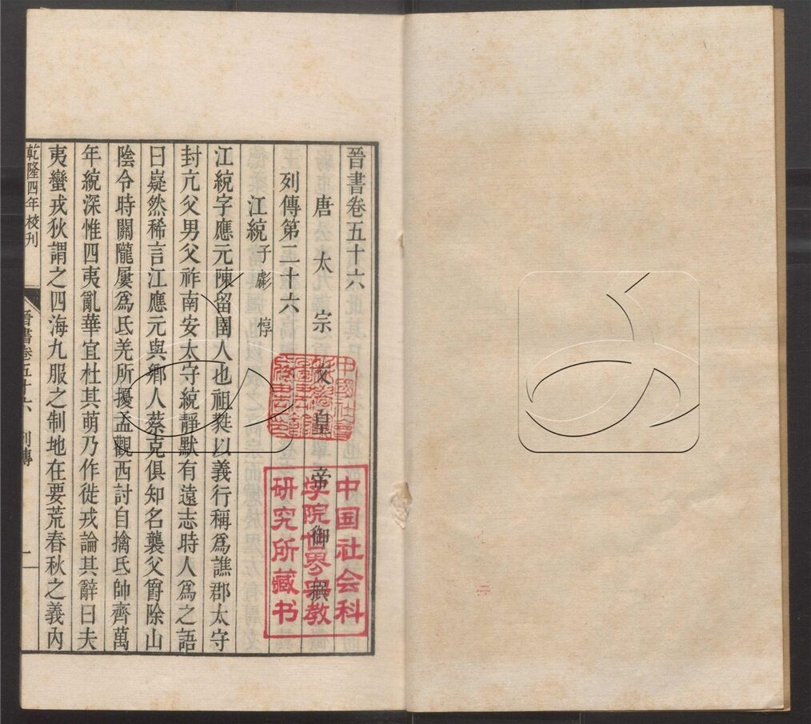 晉書卷五十六
唐太宗文皇帝御撰
列傳第二十六
江統 子虨 惇
江統字應元陳留圉人也祖蕤以義行稱爲譙郡太守
封亢父男父祚南安太守統靜默有遠志時人爲之語
曰嶷然稀言江應元與鄉人蔡克俱知名襲父爵除山
陰令時關隴屢爲氐羌所擾孟觀西討自擒氐帥齊萬
年統深惟四夷亂華宜杜其萌乃作徙戎論其辭曰夫
夷蠻戎狄謂之四海九服之制地在要荒春秋之義內
乾隆四年校刊
晉書卷五十六 列傳
一
中国社会科
学院世界宗教
研究所藏书